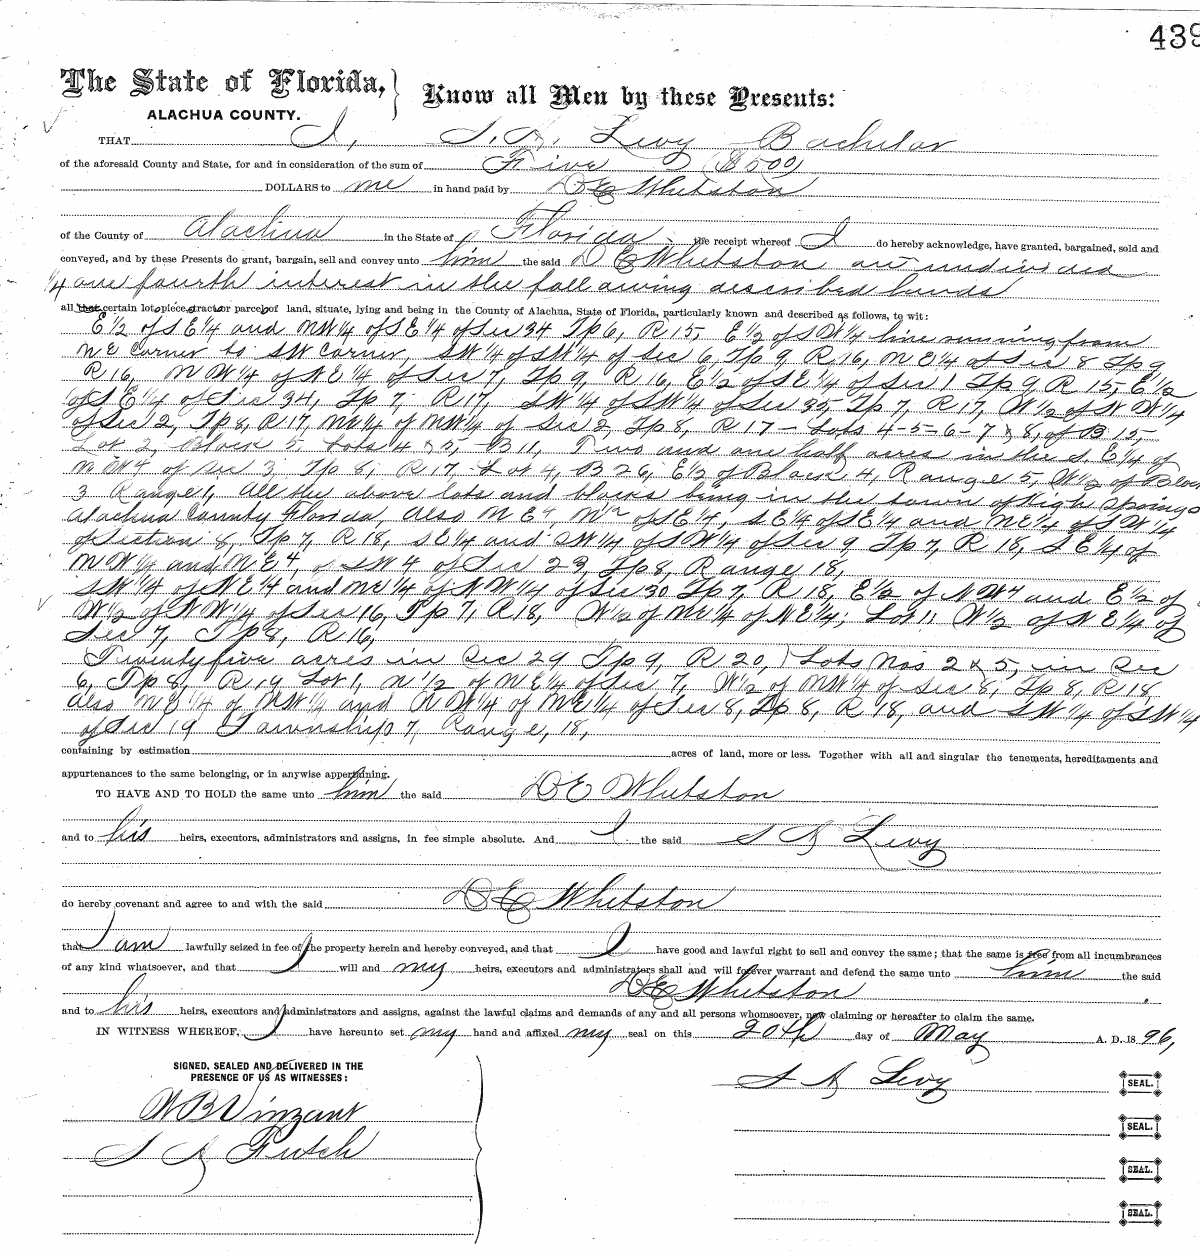 439
The State of Florida, } Know all Men by these Presents:
ALACHUA COUNTY.
THAT I, Levy Bachelor
of the aforesaid County and State, for and in consideration of the sum of Five ($500)
DOLLARS to me in hand paid by D E Whetston
of the County of Alachua in the State of Florida the receipt whereof I do hereby acknowledge, have granted, bargained, sold and
conveyed, and by these Presents do grant, bargain, sell and convey unto him the said D E Whetston an undivided
1/4 one fourth interest in the following described lands
all that certain lot, piece, tract or parcel of land, situate, lying and being in the County of Alachua, State of Florida, particularly known and described as follows, to wit:
E 1/2 of S E 1/4 and N W 1/4 of S E 1/4 of Sec 34 Tp 6, R 15, E 1/2 of S W 1/4 line running from
N E Corner to S W Corner, S W 1/4 of S W 1/4 of Sec 6, Tp 9, R 16, N E 1/4 of Sec 8 Tp 9
R 16, N W 1/4 of N E 1/4 of Sec 7, Tp 9, R 16, E 1/2 of S E 1/4 of Sec 1 Tp 9 R 15, E 1/2
of S E 1/4 of Sec 34, Tp 7, R 17, S W 1/4 of S W 1/4 of Sec 35, Tp 7, R 17, W 1/2 of N W 1/4
of Sec 2, Tp 8, R 17, N E 1/4 of N W 1/4 of Sec 2, Tp 8, R 17 - Lots 4-5-6-7 & 8, of B 15,
Lot 2, Block 5, Lots 4 & 5, B 11, Two and one half acres in the S. E 1/4 of
N W 4 of Sec 3 Tp 8, R 17, Lot 4, B 26, E 1/2 of Block 4, Range 5, W 1/2 of Block
3 Range 1, All the above lots and blocks being in the town of High Springs
Alachua County Florida, Also N E 4, N 2 of S E 1/4, S E 1/4 of S E 1/4 and N E 1/4 of S W 1/4
of Section 8, Tp 7, R 18, S E 1/4 and S W 1/4 of S W 1/4 of Sec 9, Tp 7, R 18, S E 1/4 of
N W 1/4 and N E 4, of S W 4 of Sec 23, Tp 8, Range 18,
S W 1/4 of N E 1/4 and N E 1/4 of N W 1/4 of Sec 30 Tp 7, R 18, E 1/2 of N W 4 and E 1/2 of
W 1/2 of N W 1/4 of Sec 16, Tp 7, R 18, W 1/2 of N E 1/4 of N E 1/4; Lot 1; W 1/2 of N E 1/4 of
Sec 7, Tp 8, R 16,
Twenty five acres in Sec 29 Tp 9, R 20, Lots Nos 2 & 5, in Sec
6, Tp 8, R 19 Lot 1, N 1/2 of N E 1/4 of Sec 7, W 1/2 of N W 1/4 of Sec 8, Tp 8, R 18,
Also N E 1/4 of N W 1/4 and N W 1/4 of N E 1/4 of Sec 8, Tp 8, R 18, and S W 1/4 of S W 1/4
of Sec 19 Township 7, Range, 18,
containing by estimation acres of land, more or less. Together with all and singular the tenements, hereditaments and
appurtenances to the same belonging, or in anywise appertaining.
TO HAVE AND TO HOLD the same unto him the said D E Whetston
and to his heirs, executors, administrators and assigns, in fee simple absolute. And I the said Levy
do hereby covenant and agree to and with the said D E Whetston
that I am lawfully seized in fee of the property herein and hereby conveyed, and that I have good and lawful right to sell and convey the same; that the same is free from all incumbrances
of any kind whatsoever, and that I will and my heirs, executors and administrators shall and will forever warrant and defend the same unto him the said
D E Whetston
and to his heirs, executors and administrators and assigns, against the lawful claims and demands of any and all persons whomsoever, now claiming or hereafter to claim the same.
IN WITNESS WHEREOF, I have hereunto set my hand and affixed my seal on this 20th day of May A. D. 18 96,
SIGNED, SEALED AND DELIVERED IN THE
PRESENCE OF US AS WITNESSES:
Levy SEAL.
W B Vinzant
SEAL.
Futch
SEAL.
SEAL.